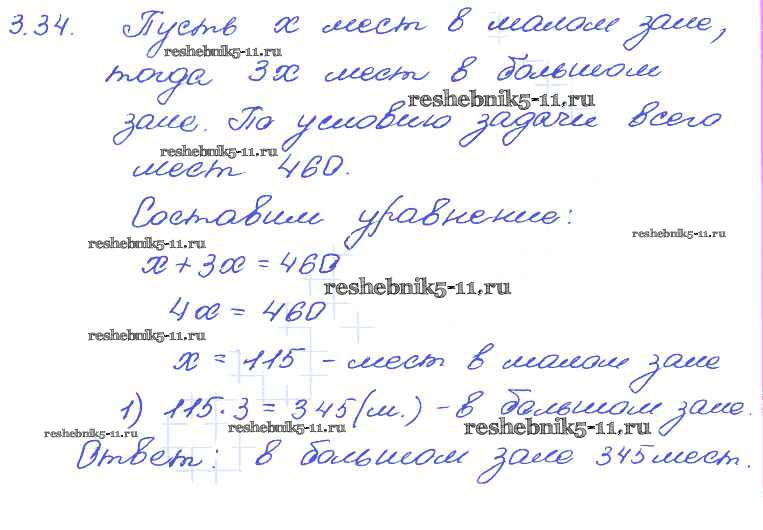 3.34. Пусть x мест в малом зале,
reshebnik5-11.ru
тогда 3x мест в большом
reshebnik5-11.ru
зале. По условию задачи всего
reshebnik5-11.ru
мест 460.
Составим уравнение:
reshebnik5-11.ru
reshebnik5-11.ru
x + 3x = 460
reshebnik5-11.ru
4x = 460
reshebnik5-11.ru
x = 115 - мест в малом зале
1) 115·3 = 345 (м.) - в большом зале.
reshebnik5-11.ru
reshebnik5-11.ru
reshebnik5-11.ru
Ответ: в большом зале 345 мест.